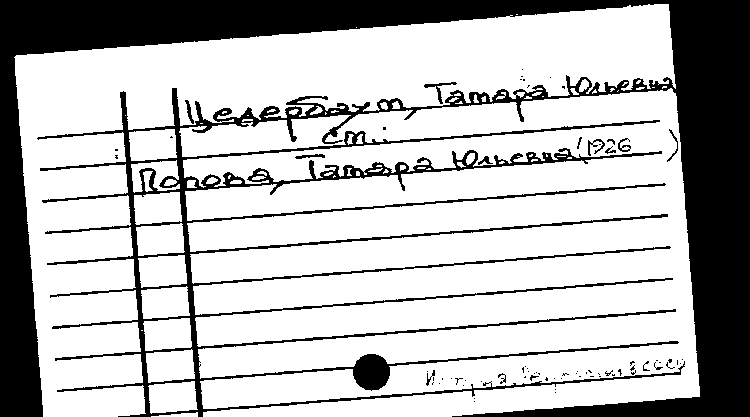 Цедербаум, Тамара Юльевна
см.:
Попова, Тамара Юльевна (1926 )
в СССР